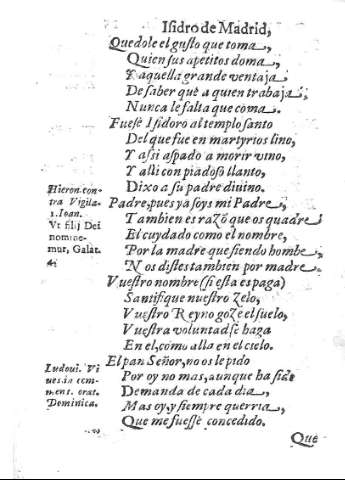 Isidro de Madrid,
Quedole el gusto que toma,
Quien sus apetitos doma,
Y aquella grande ventaja
De saber que a quien trabaja,
Nunca le falta que coma.
Fuesse Isidoro al templo santo
Del que fue en martyrios lino,
Y assi aspado a morir vino,
Y alli con piadoso llanto,
Dixo a su padre diuino.
Padre, pues ya soys mi Padre,
Tambien es razõ que os quadre
El cuydado como el nombre,
Por la madre que siendo hombre,
Nos distes tambien por madre.
Vuestro nombre (si esta es paga)
Santifique nuestro zelo,
Vuestro Reyno goze el suelo,
Vuestra voluntad se haga
En el, como alla en el cielo.
El pan Señor, no os le pido
Por oy no mas, aunque ha sido
Demanda de cada dia,
Mas oy, y siempre querria,
Que me fuesse concedido.
Que
Hieron. con-
tra Vigila.
1. Ioan.
Vt filij Dei
nomine-
mur, Galat.
4.
Ludoui. Vi
ues in com-
mens. orat.
Dominica.